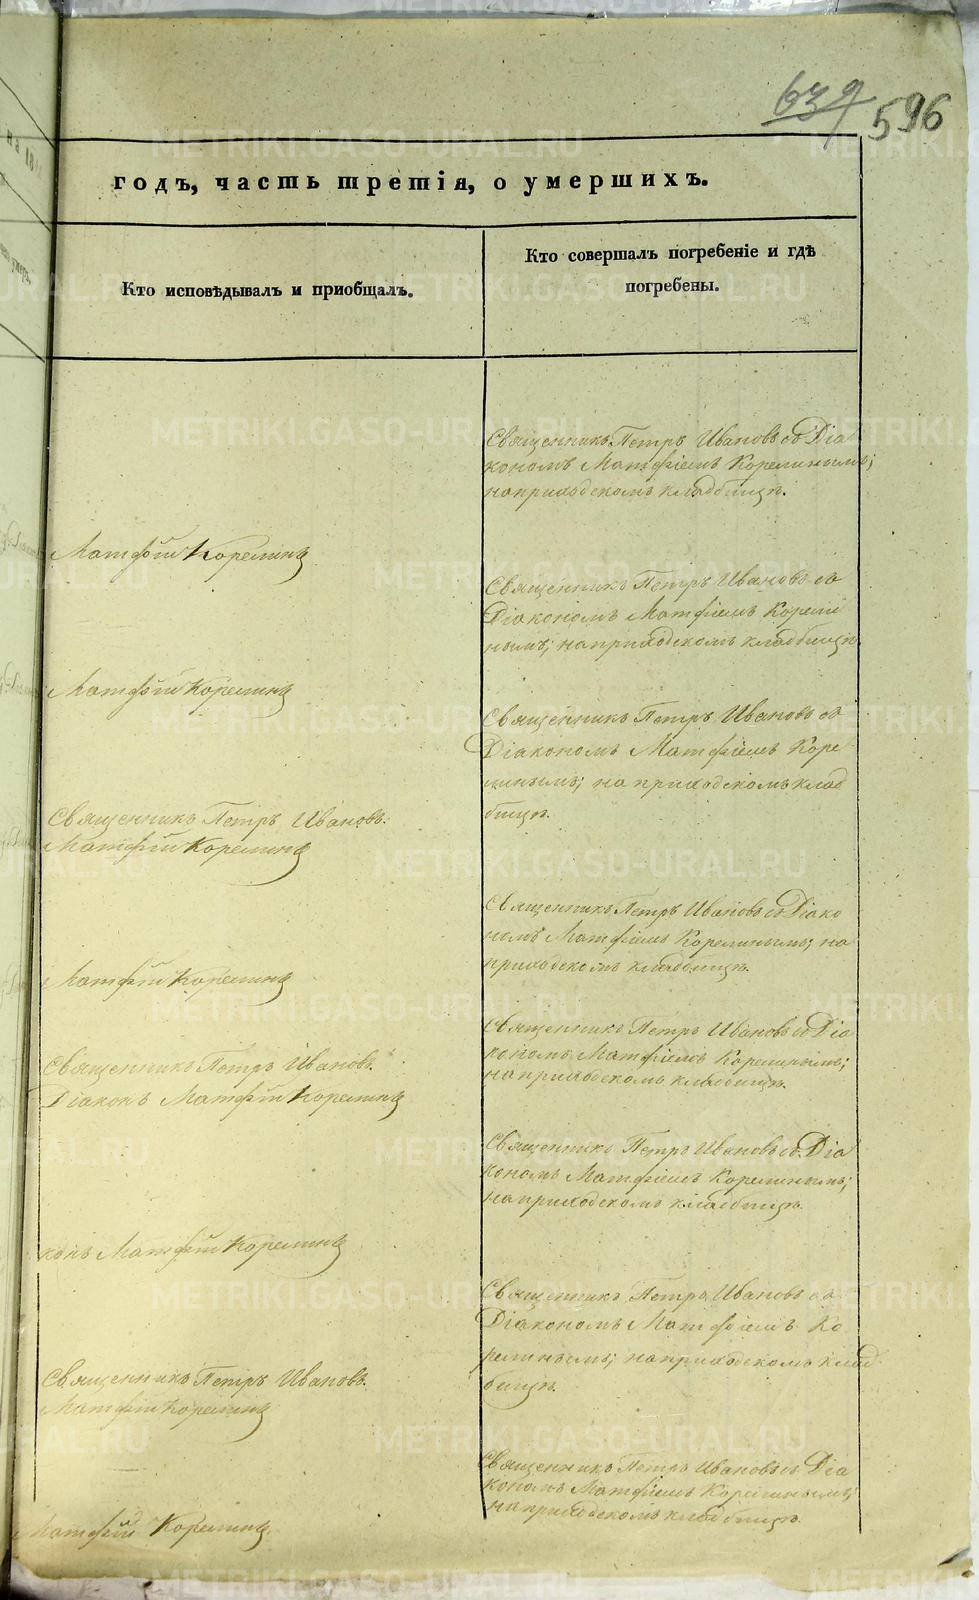 639 596
годъ, часть третія, о умершихъ.
Кто исповѣдывалъ и приобщалъ.
Кто совершалъ погребеніе и гдѣ
погребены.
Священникъ Петръ Ивановъ съ Діа
кономъ Матфіемъ Корелинымъ;
на приходскомъ кладбищѣ.
Матфій Корелинъ
Священникъ Петръ Ивановъ съ
Діакономъ Матфіемъ Корели
нымъ; на приходскомъ кладбищѣ.
Матфій Корелинъ
Священникъ Петръ Ивановъ съ
Діакономъ Матфіемъ Коре
линымъ; на приходскомъ клад
бищѣ.
Священникъ Петръ Ивановъ.
Матфій Корелинъ
Священникъ Петръ Ивановъ съ Діако
номъ Матфіемъ Корелинымъ; на
приходскомъ кладбищѣ.
Матфій Корелинъ
Священникъ Петръ Ивановъ съ Діа
кономъ Матфіемъ Корелинымъ;
на приходскомъ кладбищѣ.
Священникъ Петръ Ивановъ.
Діаконъ Матфій Корелинъ
Священникъ Петръ Ивановъ съ Діа
кономъ Матфіемъ Корелинымъ;
на приходскомъ кладбищѣ.
конъ Матфій Корелинъ
Священникъ Петръ Ивановъ съ
Діакономъ Матфіемъ Ко
релинымъ; на приходскомъ клад
бищѣ.
Священникъ Петръ Ивановъ.
Матфій Корелинъ
Священникъ Петръ Ивановъ съ Діа
кономъ Матфіемъ Корелинымъ;
на приходскомъ кладбищѣ.
Матфій Корелинъ
METRIKI.GASO-URAL.RU